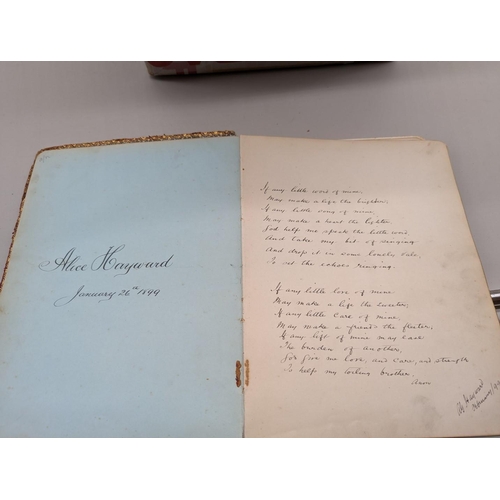 Alice Hayward
January 26th 1899
If any little word of mine,
May make a life the brighter,
If any little song of mine,
May make a heart the lighter,
God help me speak the little word,
And take my bit of singing
And drop it in some lonely vale,
To set the echoes ringing.
If any little love of mine
May make a life the sweeter,
If any little care of mine,
May make a friends the fleeter,
If any lift of mine may ease
The burden of another,
God give me love, and care, and strength
To help my toiling brother.
Anon
Hayward